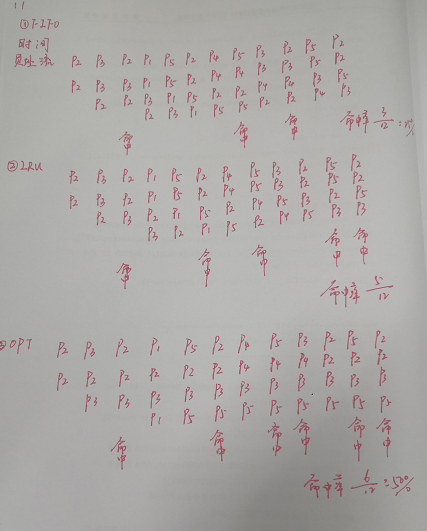 11
①FIFO
时间
页地址流 P2 P3 P2 P1 P5 P2 P4 P5 P3 P2 P5 P2
P2 P3 P3 P1 P5 P2 P4 P4 P3 P3 P5 P2
P2 P2 P3 P1 P5 P2 P2 P4 P4 P3 P5
P2 P3 P1 P5 P5 P2 P2 P4 P3
命中 命中 命中
命中率 3/12 = 25%
②LRU
P2 P3 P2 P1 P5 P2 P4 P5 P3 P2 P5 P2
P2 P3 P2 P1 P5 P2 P4 P5 P3 P2 P5 P2
P2 P3 P2 P1 P5 P2 P4 P5 P3 P2 P5
P3 P2 P1 P5 P2 P4 P5 P3 P3
命中 命中 命中 命中 命中
命中率 5/12
③OPT
P2 P3 P2 P1 P5 P2 P4 P5 P3 P2 P5 P2
P2 P2 P2 P2 P2 P2 P4 P4 P4 P2 P2 P2
P3 P3 P3 P3 P3 P3 P3 P3 P3 P3 P3
P1 P5 P5 P5 P5 P5 P5 P5 P5
命中 命中 命中 命中 命中 命中
命中率 6/12 = 50%